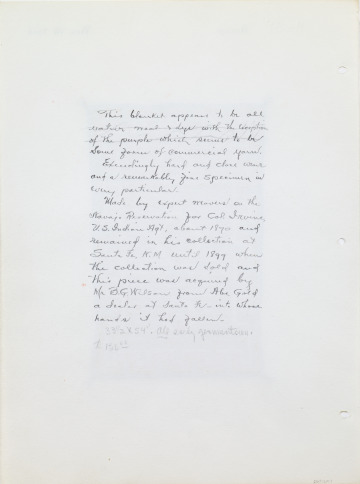 This blanket appears to be all
native wool & dye with the exception
of the purple which seems to be
some form of commercial yarn.
Exceedingly hard and close wove
and a remarkably fine specimen in
every particular.
Made by expert weavers on the
Navajo Reservation for Col Irvine,
U.S. Indian Agt, about 1870 and
remained in his collection at
Santa Fe, N.M. until 1899 when
the collection was sold and
this piece was acquired by
Mr B.G. Wilson from Abe Gold
a dealer at Santa Fe into whose
hands it had fallen.
early
$150